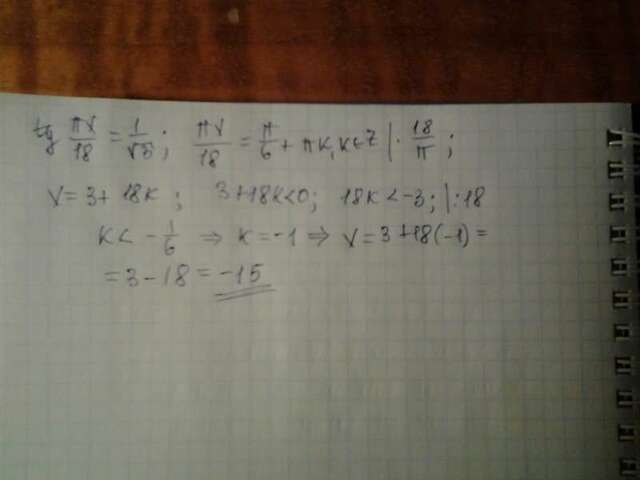 tg πx/18 = 1/√3; πx/18 = π/6 + πk, k∈Z |· 18/π;
x = 3 + 18k; 3+18k<0; 18k < -3; |:18
k < -1/6 ⇒ k = -1 ⇒ x = 3+18(-1) =
= 3 - 18 = -15